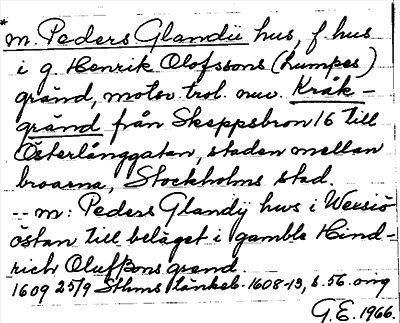 * m. Peders Glandÿ hus, f. hus
i g Henrik Olofssons (Lumpes)
gränd, motsv. trol. nuv. Kråk-
gränd från Skeppsbron 16 till
Österlånggatan, staden mellan
broarna, Stockholms stad.
-- m: Peders Glandÿ hws i
östan till beläget i gamble Hind-
rich Olufßons grend
1609 25/9 Sthms tänkeb. 1608-13, s. 56. orig
G.E. 1966.